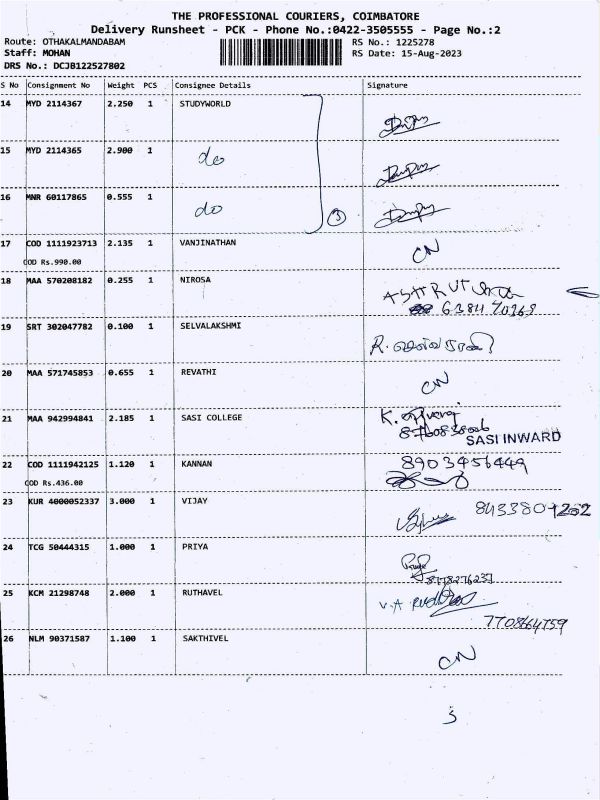 THE PROFESSIONAL COURIERS, COIMBATORE
Delivery Runsheet - PCK - Phone No.:0422-3505555 - Page No.:2
Route: OTHAKALMANDABAM RS No.: 1225278
Staff: MOHAN RS Date: 15-Aug-2023
DRS No.: DCJB122527802
S No Consignment No Weight PCS Consignee Details Signature
14 MYD 2114367 2.250 1 STUDYWORLD
15 MYD 2114365 2.900 1 do
16 MNR 60117865 0.555 1 do 3
17 COD 1111923713 2.135 1 VANJINATHAN CN
COD Rs.990.00
18 MAA 570208182 0.255 1 NIROSA
19 SRT 302047782 0.100 1 SELVALAKSHMI R.
20 MAA 571745853 0.655 1 REVATHI CN
21 MAA 942994841 2.185 1 SASI COLLEGE K.
SASI INWARD
22 COD 1111942125 1.120 1 KANNAN 8903456449
COD Rs.436.00
23 KUR 4000052337 3.000 1 VIJAY
24 TCG 50444315 1.000 1 PRIYA
8778276237
25 KCM 21298748 2.000 1 RUTHAVEL V.A
7708664759
26 NLM 90371587 1.100 1 SAKTHIVEL CN
3